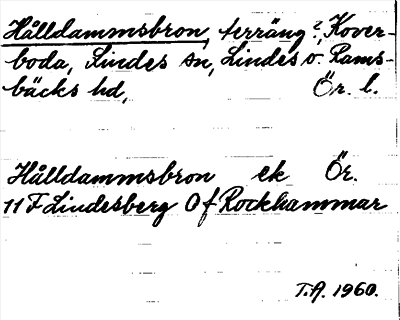 Hålldammsbron, terräng?, Kover-
boda, Lindes sn, Lindes o. Rams-
bäcks hd, Ör. l.
Hålldammsbron ek Ör.
11 F Lindesberg Of Rockhammar
T.A. 1960.